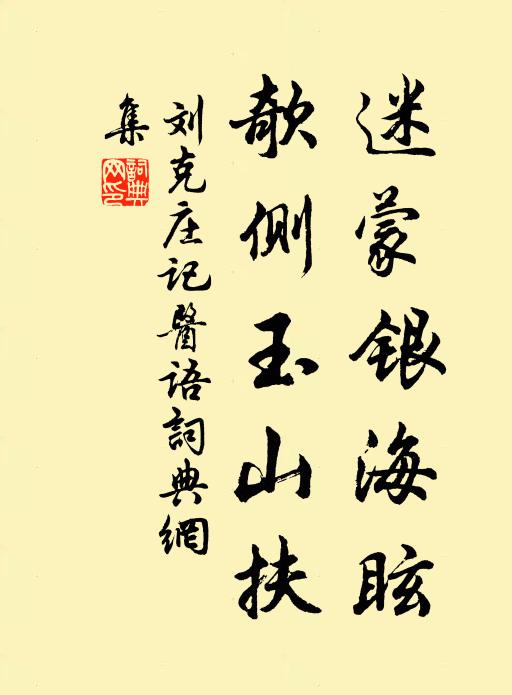 迷蒙银海眩
欹侧玉山扶
刘克庄记醫語詞典網
集
詞典網印